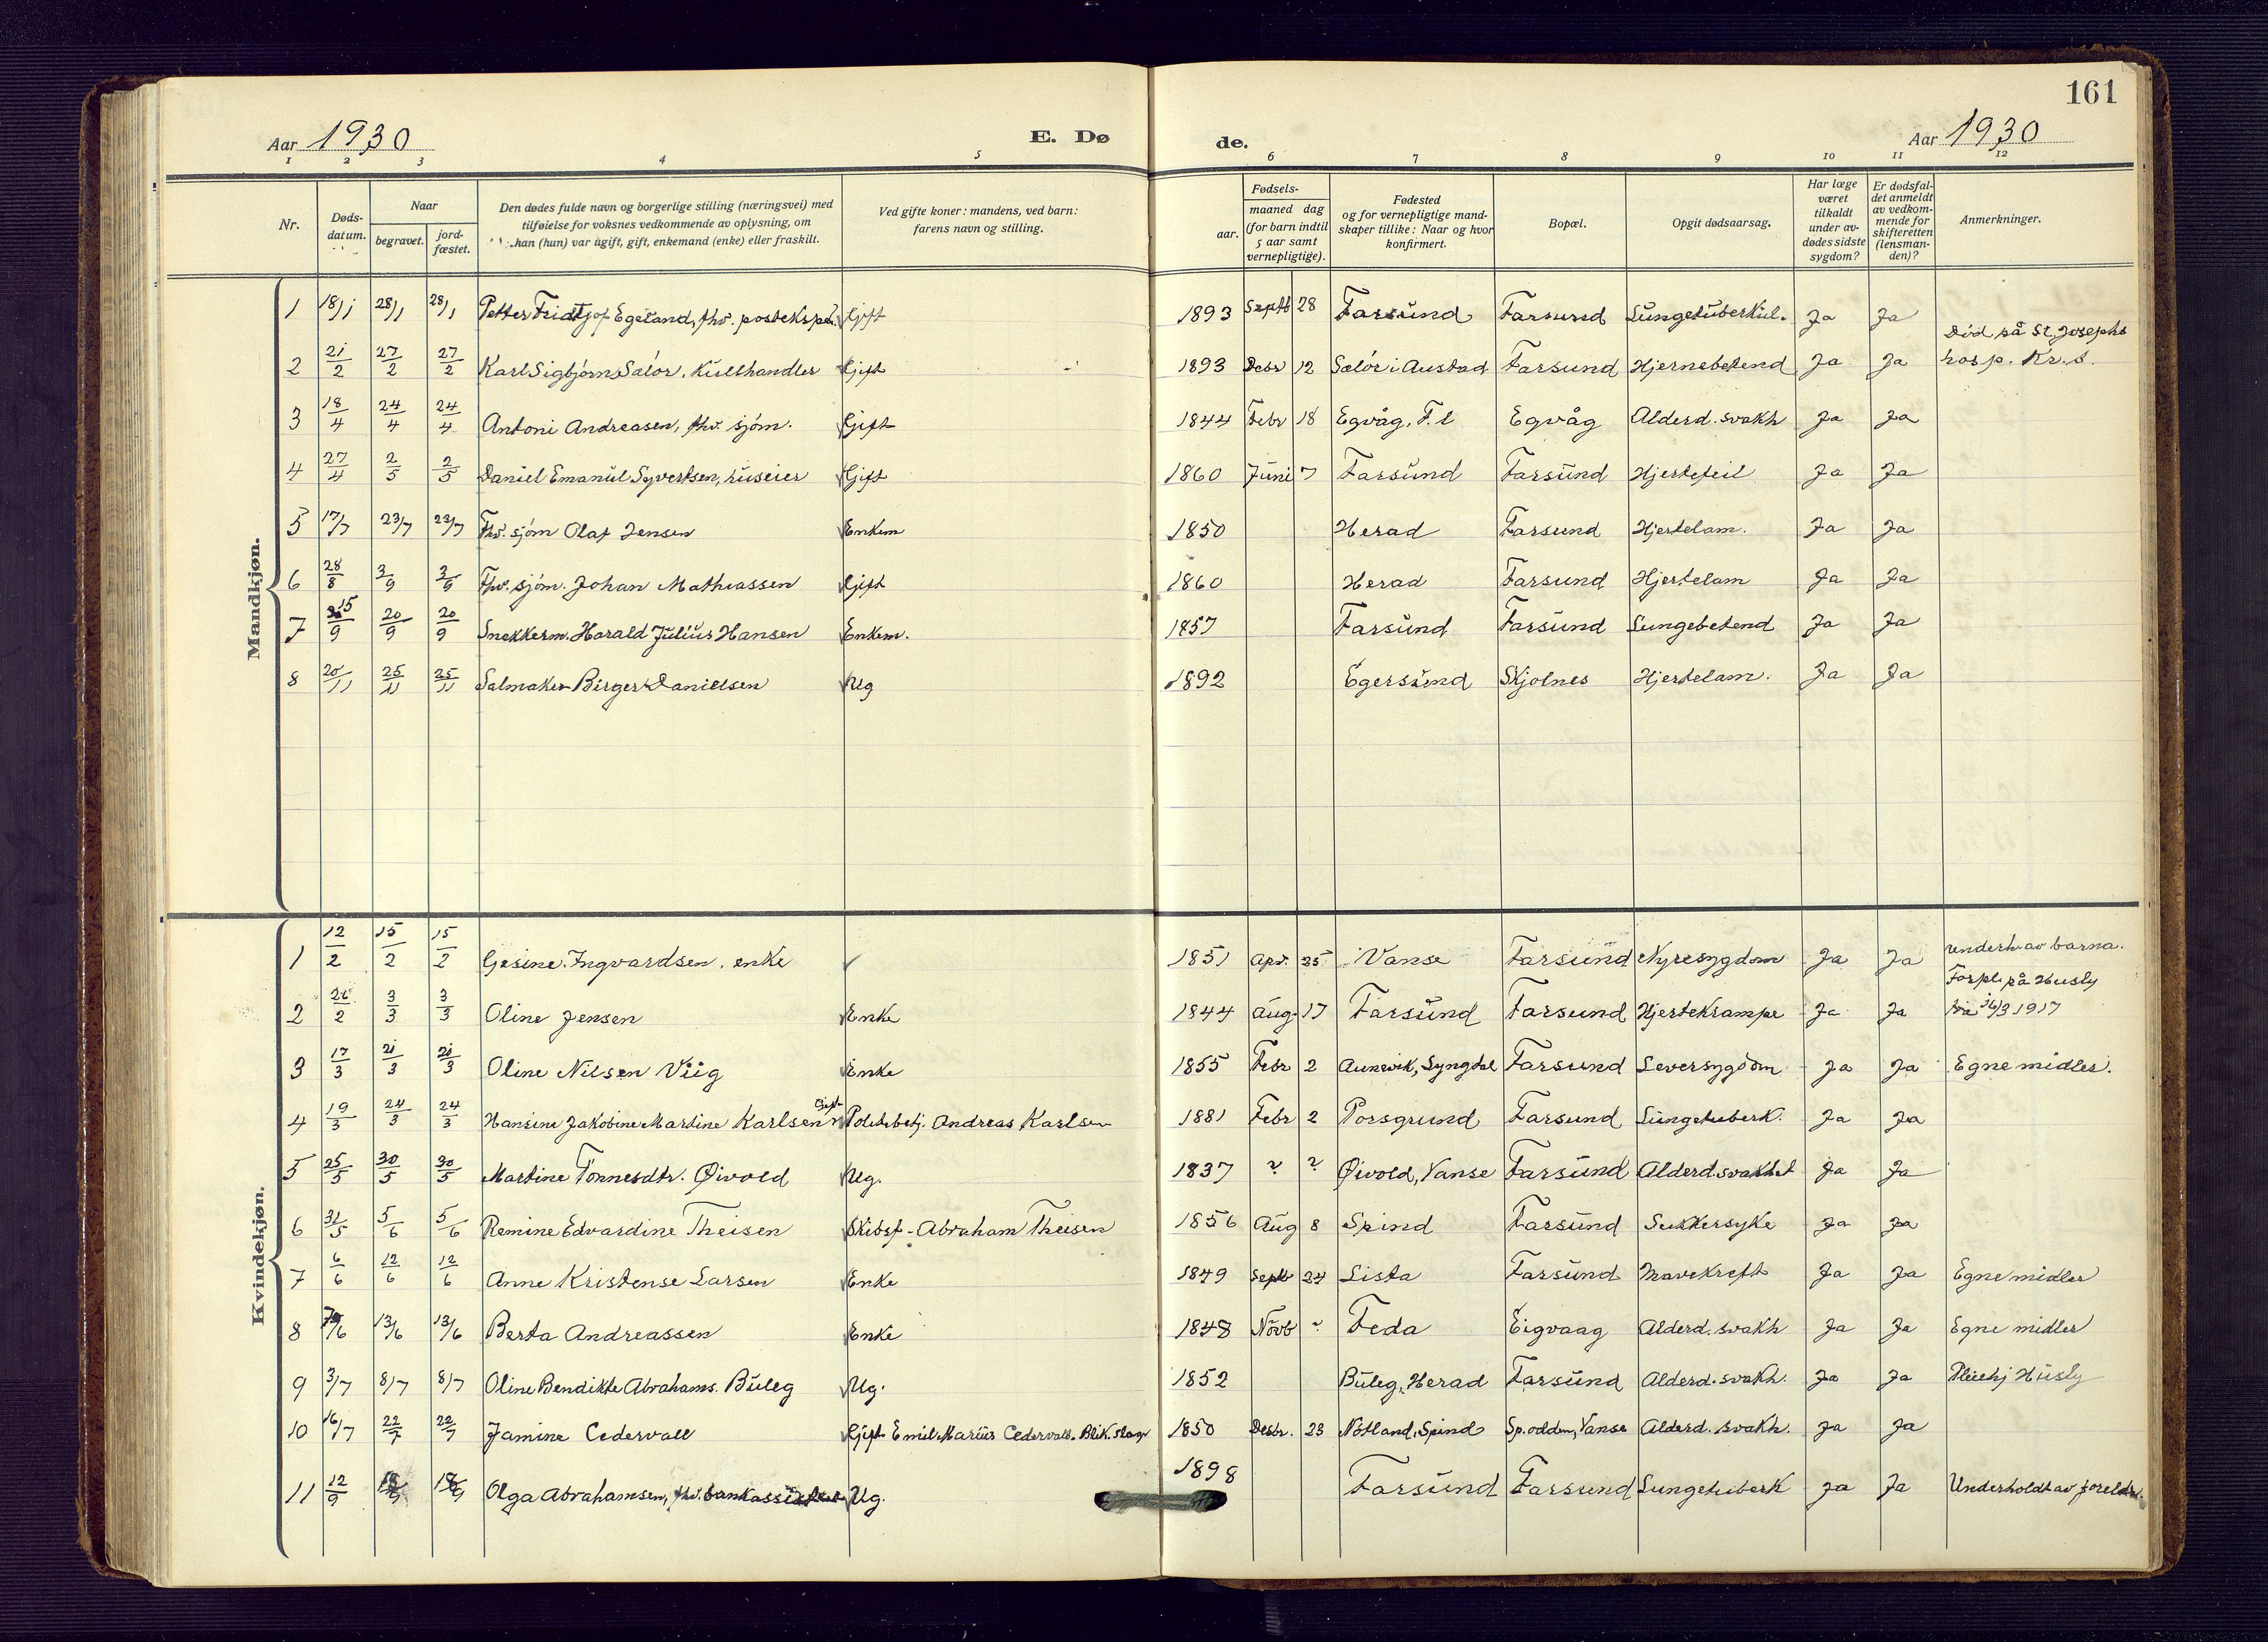 161
Aar 1930 E. Dø de. Aar 1930
1 2 3 4 5 6 7 8 9 10 11 12
Nr. Døds-datum. Naar begravet. jord-fæstet. Den dødes fulde navn og borgerlige stilling (næringsvei) med tilføielse for voksnes vedkommende av oplysning, om han (hun) var ugift, gift, enkemand (enke) eller fraskilt. Ved gifte koner: mandens, ved barn: farens navn og stilling. Fødsels- aar. maaned dag (for barn indtil 5 aar samt vernepligtige). Fødested og for vernepligtige mand-skaper tillike: Naar og hvor konfirmert. Bopæl. Opgit dødsaarsag. Har læge været tilkaldt under av-dødes sidste sygdom? Er dødsfal-det anmeldt av vedkom-mende for skifteretten (lensman-den)? Anmerkninger.
Mandkjøn.
1 18/1 28/1 28/1 Petter Fridtjof Egeland, fhv. posteksped. Gift 1893 Septb 28 Farsund Farsund Lungetuberkul. Ja Ja
2 21/2 27/2 27/2 Karl Sigbjørns Salør, Kullhandler Gift 1893 Debr 12 Salør i Austad Farsund Hjernebetend Ja Ja Död på St. Josephs hosp. Kr.s.
3 18/4 24/4 24/4 Antoni Andreasen, fhv. sjöm. Gift 1844 Febr 18 Egvåg, F.l Egvåg Alderd. svakh Ja Ja
4 27/4 2/5 2/5 Daniel Emanuel Syvertsen, huseier Gift 1860 Juni 7 Farsund Farsund Hjertefeil Ja Ja
5 17/7 23/7 23/7 Fhv. sjöm Olaf Jensen Enkem 1850 Herad Farsund Hjertelam. Ja Ja
6 28/8 3/9 3/9 Fhv. sjöm. Johan Mathiassen Gift 1860 Herad Farsund Hjertelam Ja Ja
7 15/9 20/9 20/9 Snekkerm. Harald Julius Hansen Enkem. 1857 Farsund Farsund Lungebetend Ja Ja
8 20/11 25/11 25/11 Salmaker Birger Danielsen Ug 1892 Egersund Skjolnes Hjertelam. Ja Ja
Kvindekjøn.
1 12/2 15/2 15/2 Gesine Ingvardsen, enke 1851 Apr. 25 Vanse Farsund Nyresygdom Ja Ja underh. av barna.
2 26/2 3/3 3/3 Oline Jensen Enke 1844 Aug. 17 Farsund Farsund Hjertekrampe Ja Ja Forpl. på Husly fra 16/3 1917
3 17/3 21/3 21/3 Oline Nilsen Viig Enke 1855 Febr 2 Aunevik, Lyngdal Farsund Leversygdom Ja Ja Egne midler.
4 19/3 24/3 24/3 Hansine Jakobine Martine Karlsen Gift Politibetj. Andreas Karlsen 1881 Febr 2 Porsgrund Farsund Lungetuberk. Ja Ja
5 25/5 30/5 30/5 Martine Tönnesdtr. Øivold Ug. 1837 ? ? Øivold, Vanse Farsund Alderd. svakhet Ja Ja
6 31/5 5/6 5/6 Remine Edvardine Theisen Skibsf. Abraham Theisen 1856 Aug 8 Spind Farsund Sukkersyke Ja Ja
7 6/6 12/6 12/6 Anne Kristense Larsen Enke 1849 Septb 24 Lista Farsund Mavekreft Ja Ja Egne midler
8 13/6 13/6 Berta Andreassen Enke 1848 Novb ? Feda Eigvaag Alderd. svakh Ja Ja Egne midler
9 3/7 8/7 8/7 Oline Bendikte Abrahams. Buleg Ug. 1852 Buleg, Herad Farsund Alderd. svakh. Ja Ja Pleiehj Husly
10 16/7 22/7 22/7 Jamine Cedervall Gift Emil Marius Cedervall. Blik. slager 1850 Desbr. 23 Nötland, Spind Sp.odden, Vanse Alderd. svakh. Ja Ja
11 12/9 18/9 18/9 Olga Abrahamsen, fhv. bankassistent Ug. 1898 Farsund Farsund Lungetuberk Ja Ja Underholdt av foreldr.